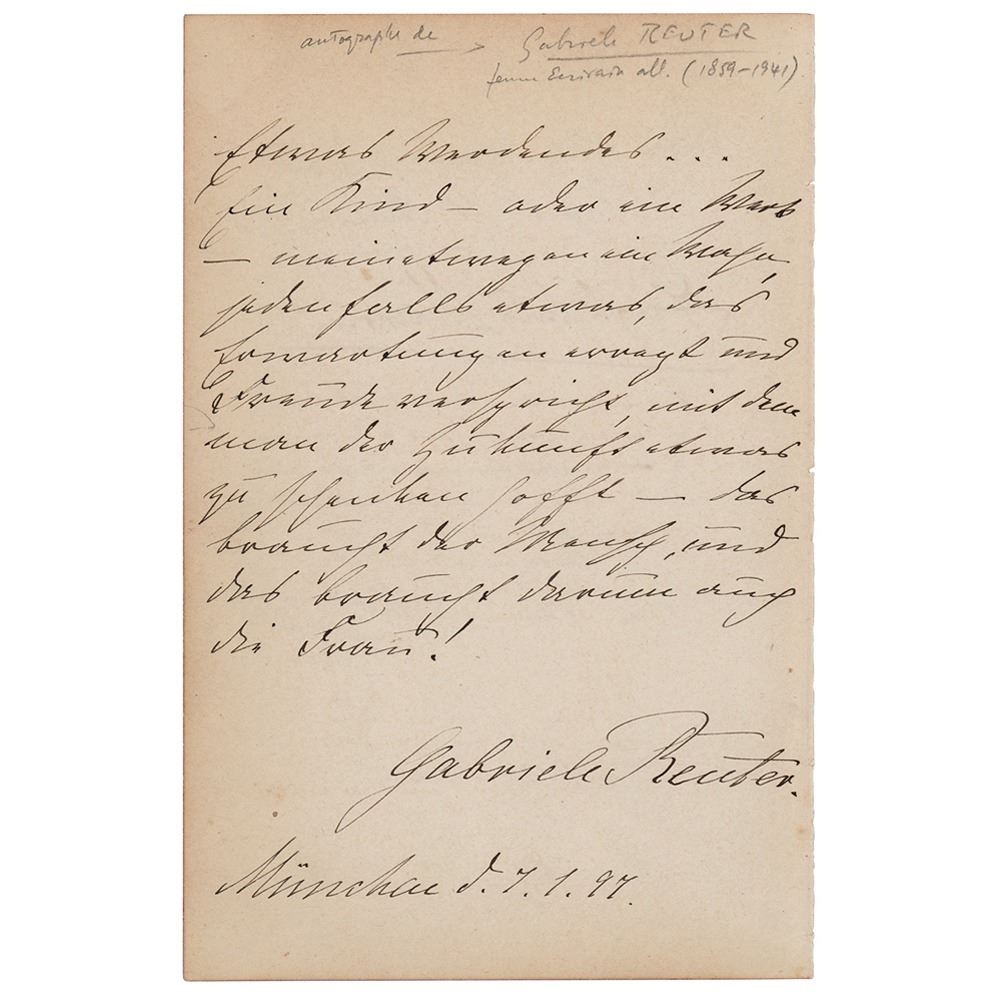 autographe de Gabriele REUTER
femme Ecrivain all. (1859-1941)
Etwas Werdendes...
Ein Kind – oder ein Werk
– meinetwegen ein Wahn,
jedenfalls etwas, das
Erwartungen erregt und
Freude verspricht, mit dem
man der Zukunft etwas
zu schenken hofft – das
braucht der Mensch, und
das braucht darum auch
die Frau!
Gabriele Reuter.
München d. 7. 1. 97.